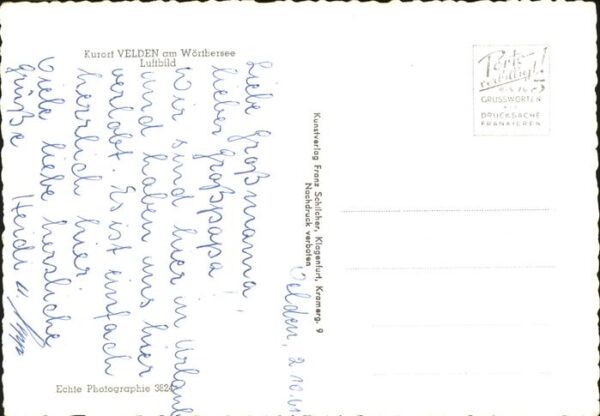 Kurort VELDEN am Wörthersee
Luftbild
Porto
verbilligt!
5
GRUSSWORTEN
DRUCKSACHE
FRANKIEREN
Kunstverlag Franz Schilcher, Klagenfurt, Kramerg. 9
Nachdruck verboten
Velden, 2.10.6
Liebe Großmama,
lieber Großpapa!
Wir sind hier in Urlaub
und haben uns hier
verlobt. Es ist einfach
herrlich hier.
Viele liebe herzliche
Grüße
Heidi u.
Echte Photographie 3824